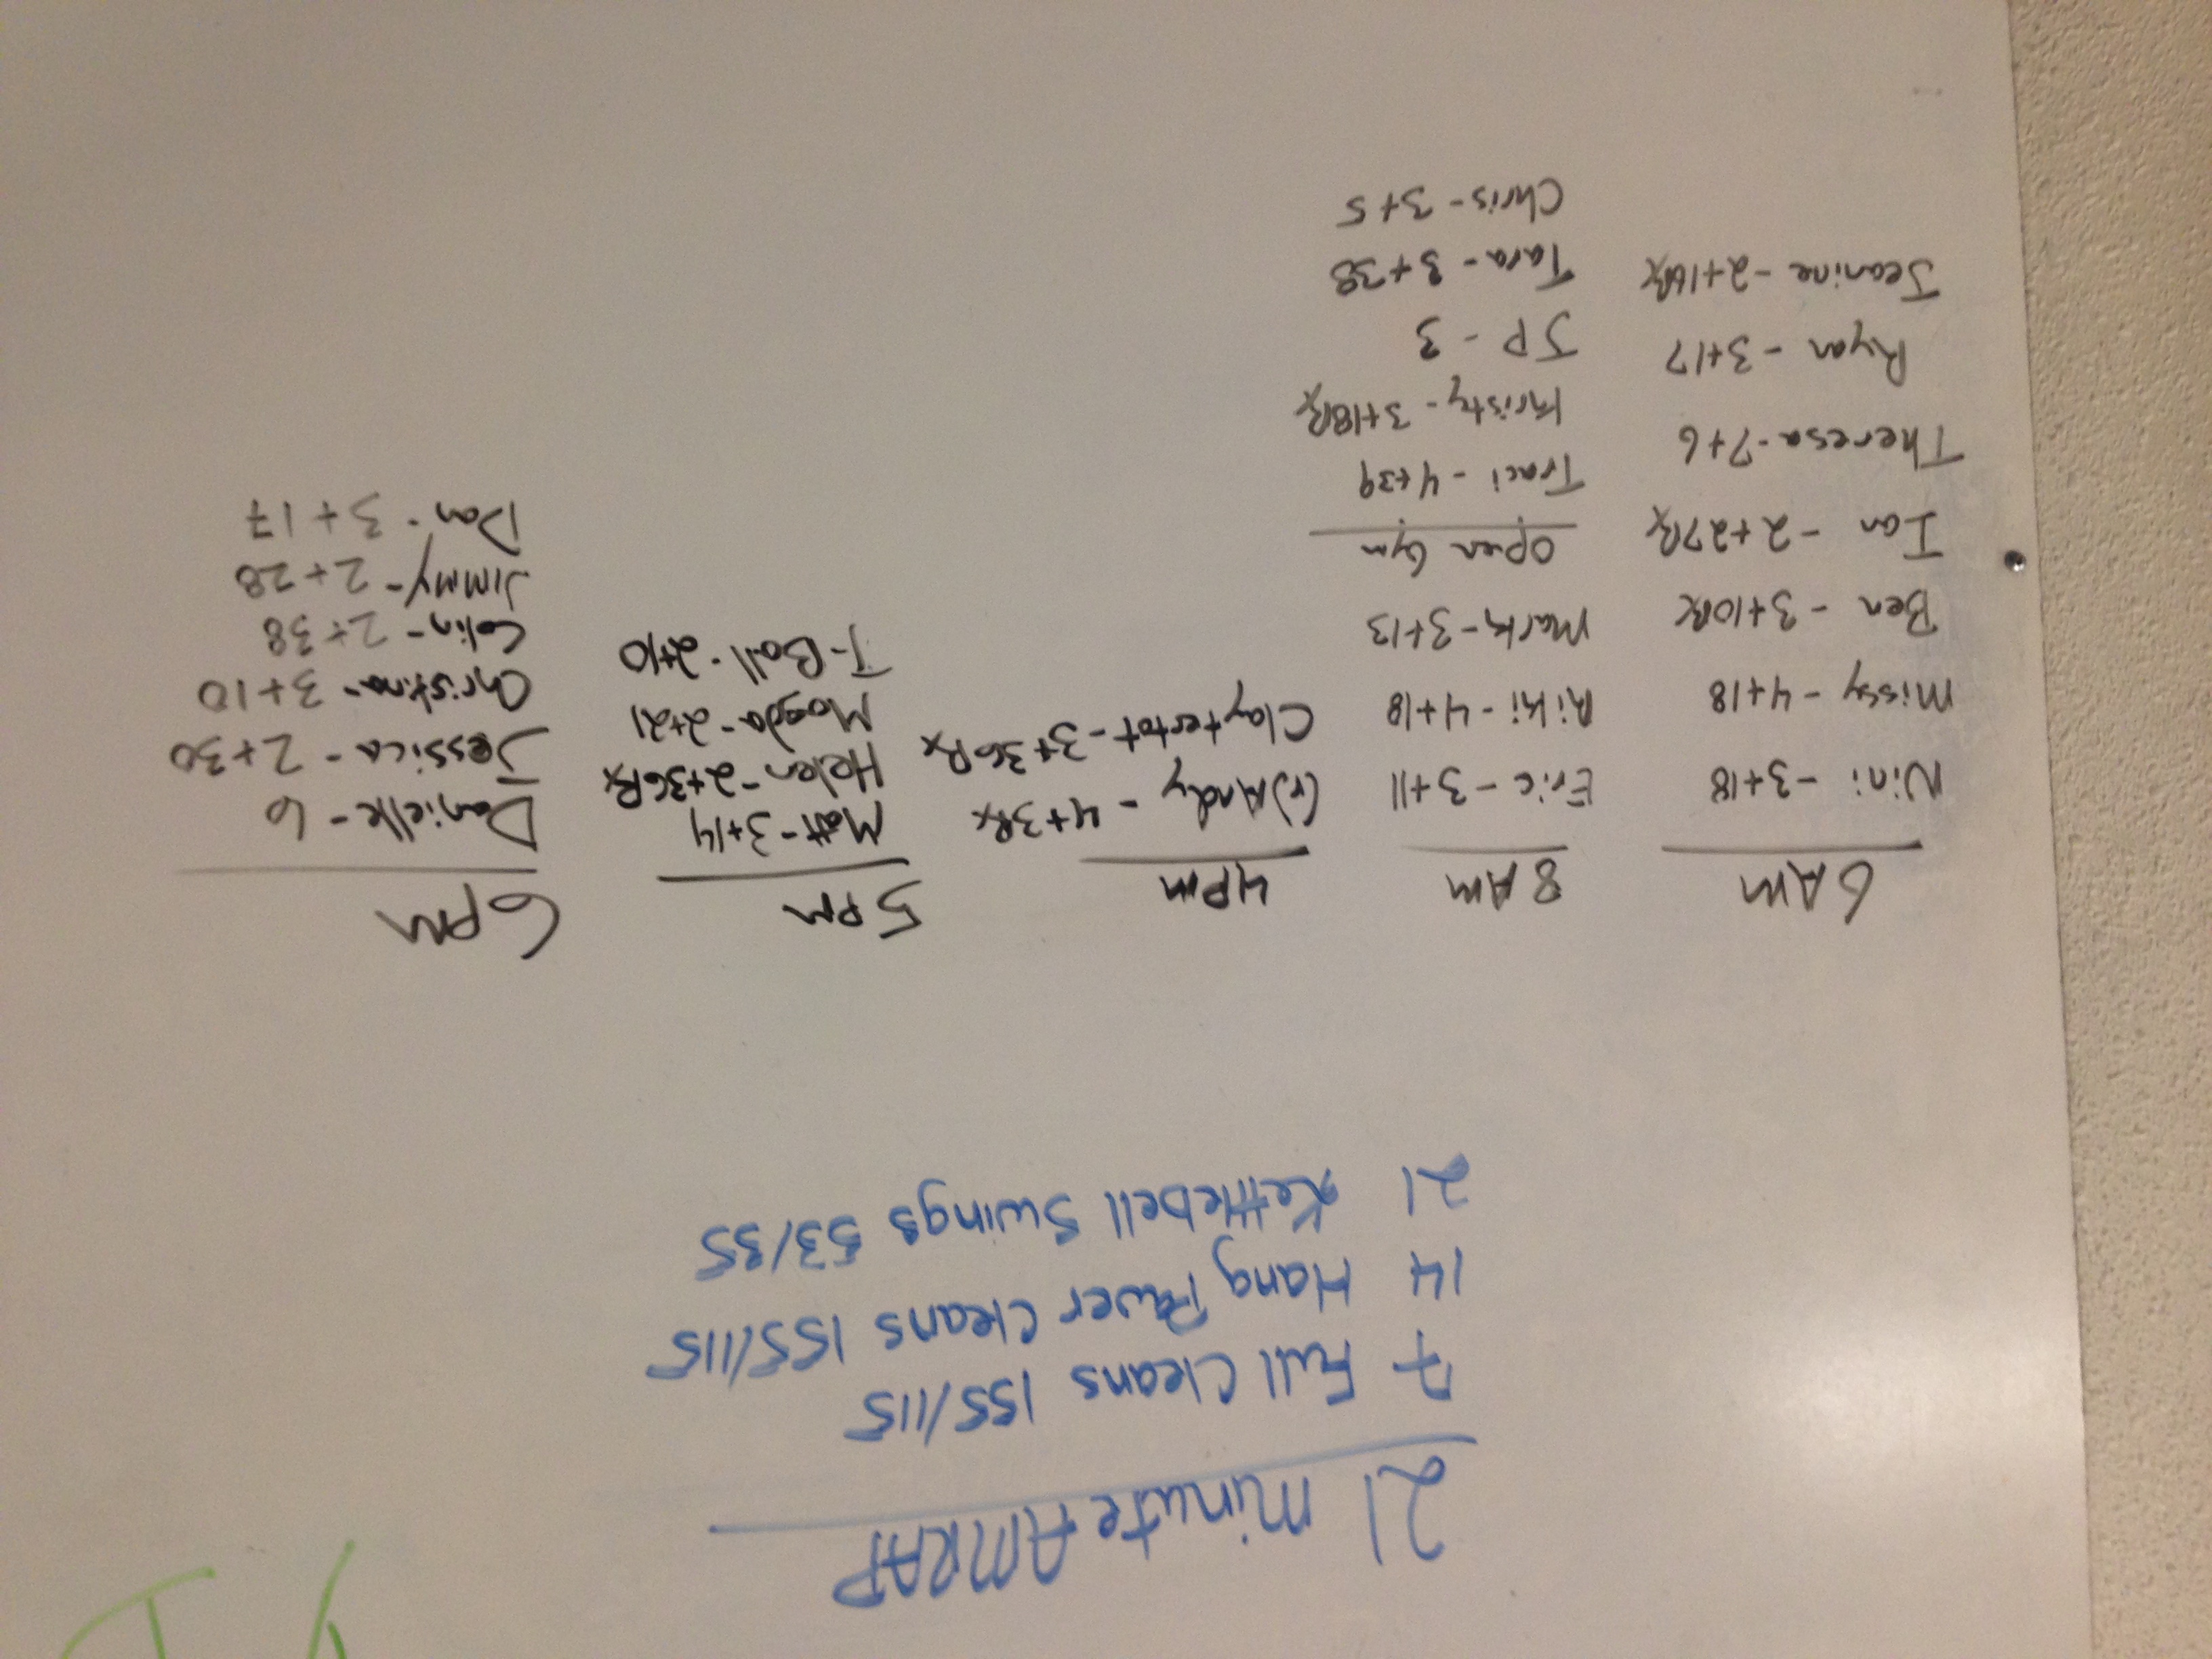 21 minute AMRAP
7 Full Cleans 155/115
14 Hang Power Cleans 155/115
21 Kettlebell Swings 53/35
6AM
Nini - 3+18
Missy - 4+18
Ben - 3+10Rx
Ian - 2+27Rx
Theresa - 7+6
Ryan - 3+17
Jeanine - 2+16Rx
8AM
Eric - 3+11
Riki - 4+18
Mark - 3+13
Open Gym
Traci - 4+39
Kristy - 3+18Rx
JP - 3
Tara - 3+38
Chris - 3+5
4PM
(r)Andy - 4+3Rx
Claytertot - 3+36Rx
5PM
Matt - 3+14
Helen - 2+36Rx
Magda - 2+21
T-Ball - 2+10
6PM
Danielle - 6
Jessica - 2+30
Christina - 3+10
Colin - 2+38
Jimmy - 2+28
Dan - 3+17